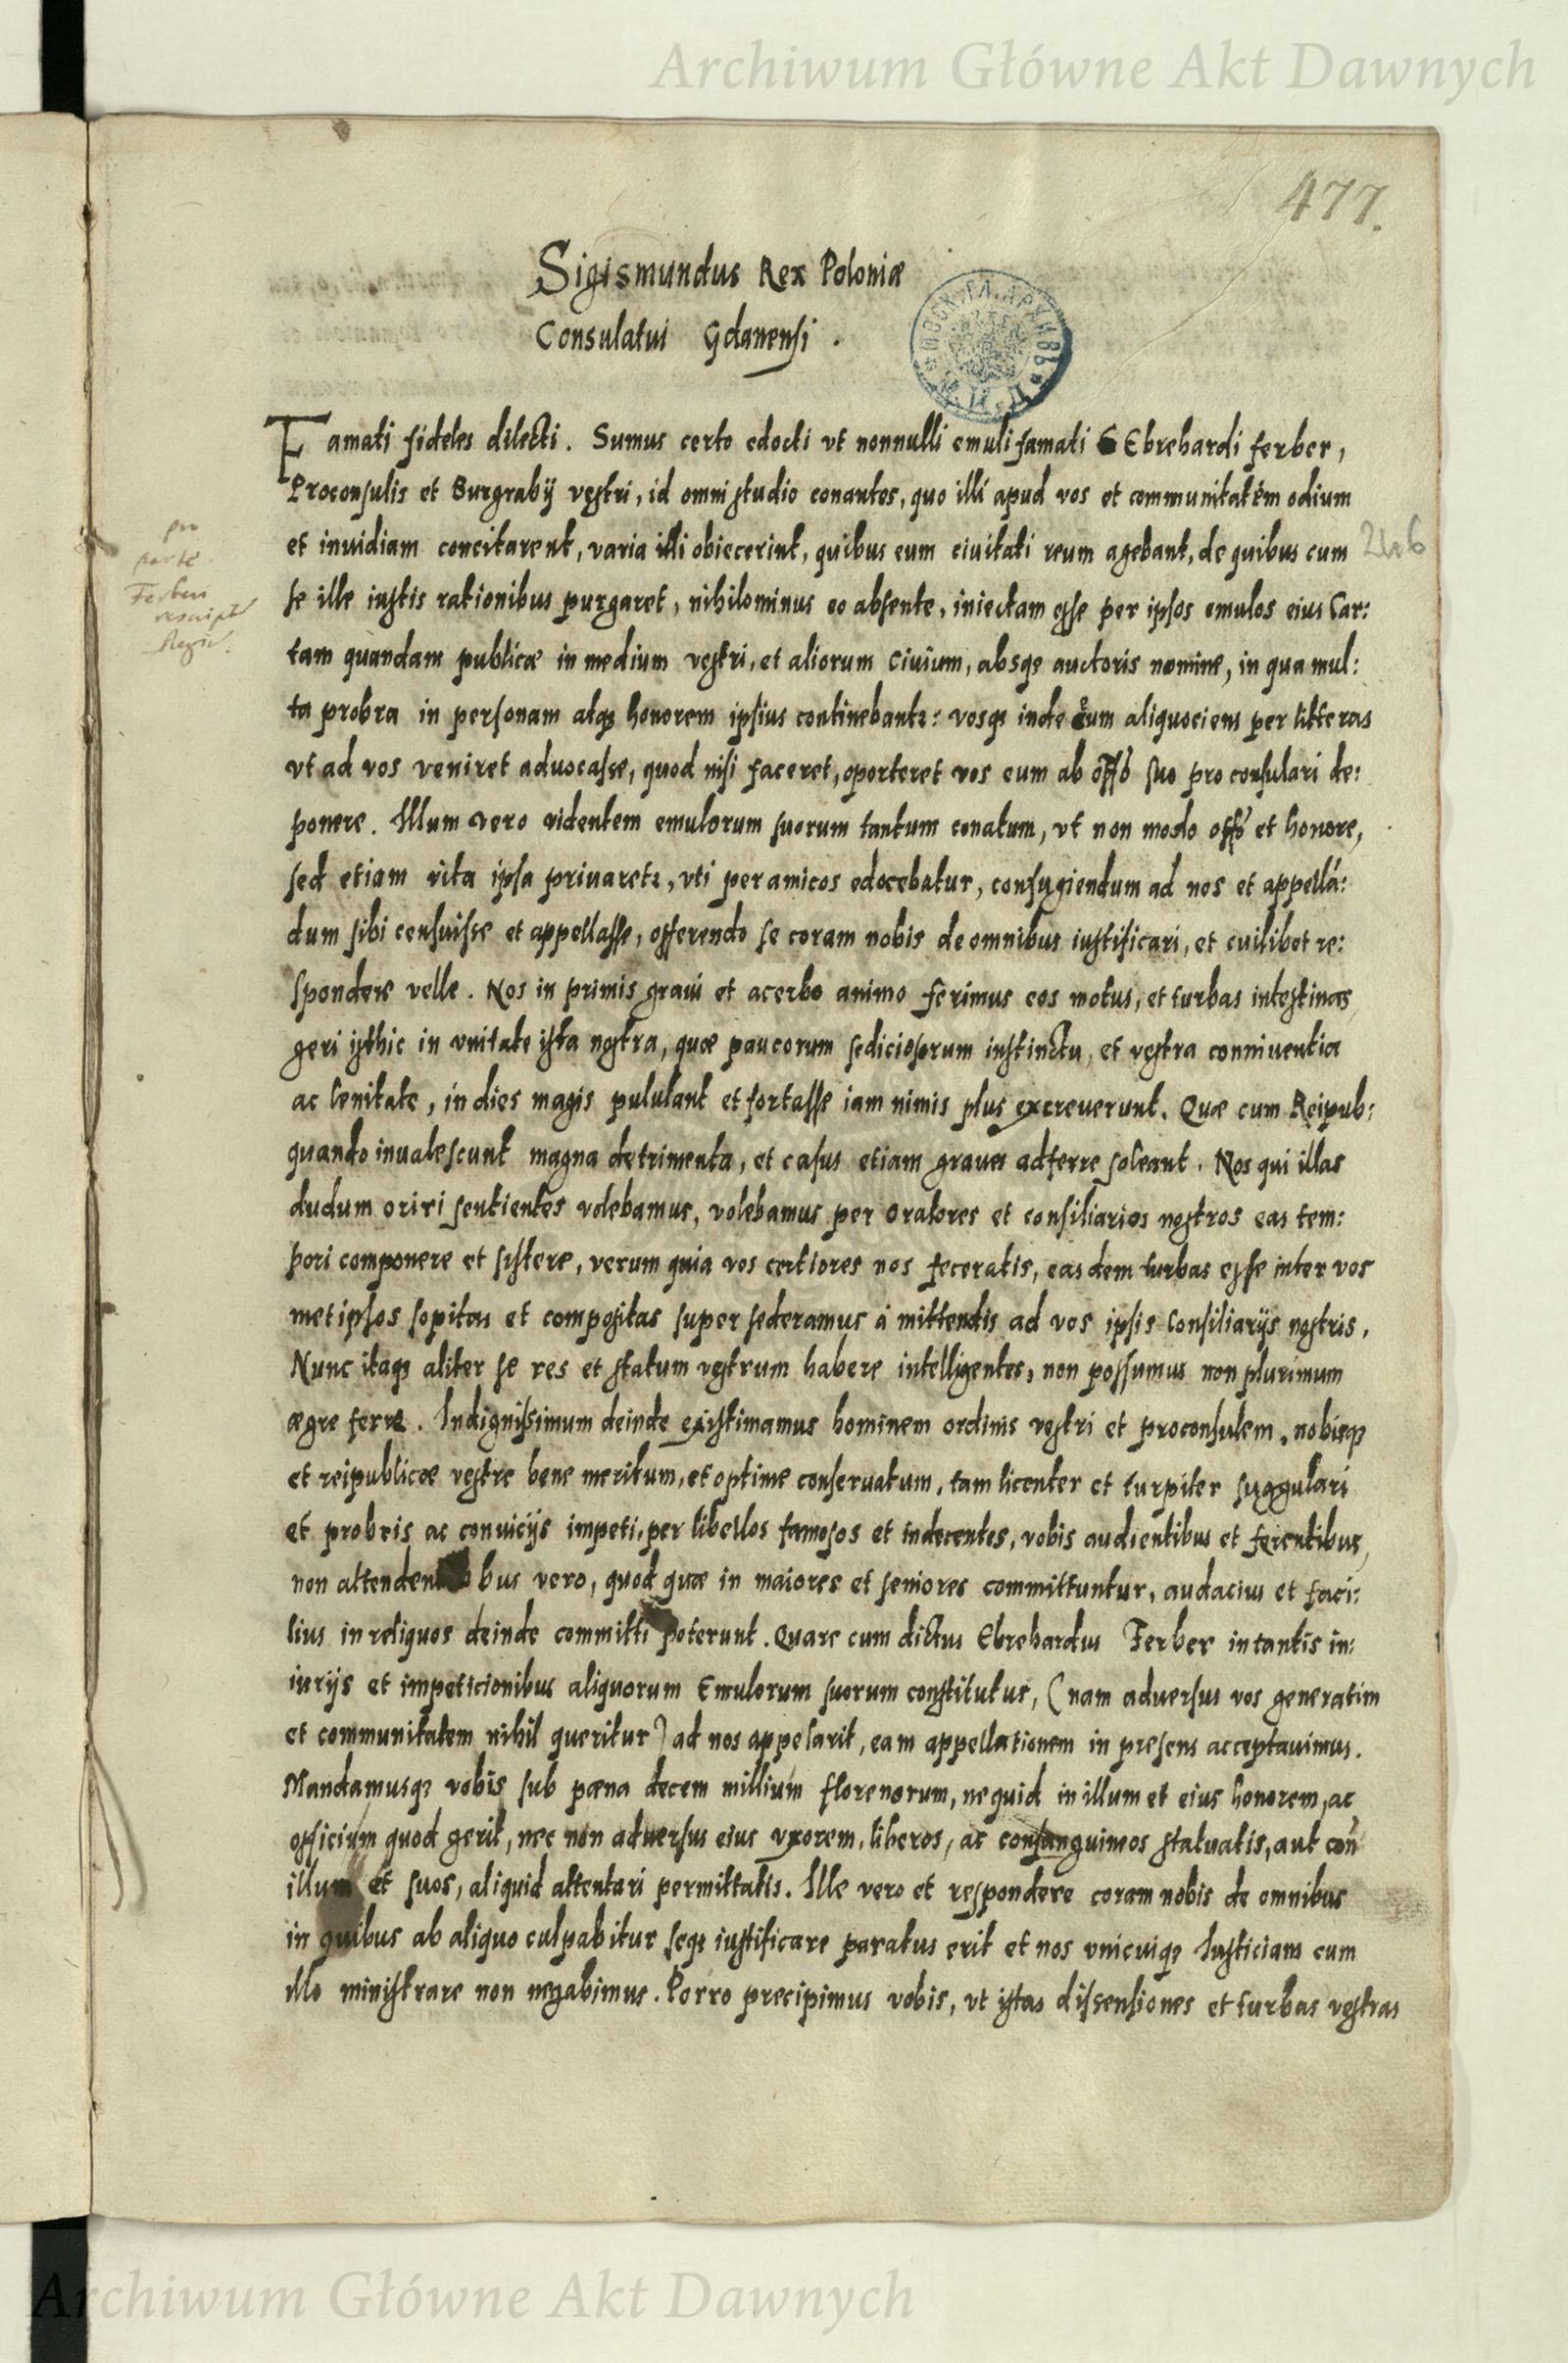 Archiwum Główne Akt Dawnych
477.
Sigismundus Rex Poloniæ
Consulatui Gdanensi .
Famati fideles dilecti. Sumus certo edocti vt nonnulli emuli famati Ebrehardi ferber,
Proconsulis et Burgrabij vestri, id omni studio conantes, quo illi apud vos et communitatem odium
et inuidiam concitarent, varia illi obiecerint, quibus eum ciuitati reum agebant, de quibus cum
se ille iustis rationibus purgaret, nihilominus eo absente, iniectam esse per ipsos emulos eius Car:
tam quandam publicæ in medium vestri, et aliorum Ciuium, absqꝫ auctoris nomine, in qua mul:
ta probra in personam atqꝫ honorem ipsius continebantꝛ: vosqꝫ inde eum aliquociens per litteras
vt ad vos veniret aduocasse, quod nisi faceret, oporteret vos eum ab offo suo proconsulari de:
ponere. Illum vero videntem emulorum suorum tantum conatum, vt non modo offo et honore,
sed etiam vita ipsa priuaretꝛ, vti per amicos edocebatur, confugiendum ad nos et appellá:
dum sibi censuisse et appellasse, offerendo se coram nobis de omnibus iustificari, et cuilibet re:
spondere velle. Nos in primis graui et acerbo animo ferimus eos motus, et turbas intestinas
geri isthic in vnitate ista nostra, quæ paucorum sediciosorum instinctu, et vestra conniuentia
ac lenitate, in dies magis pululant et fortasse iam nimis plus excreuerunt. Quæ cum Reipub:
quando inualescunt magna detrimenta, et casus etiam graues adferre soleant. Nos qui illas
dudum oriri sentientes volebamus, volebamus per oratores et consiliarios nostros eas tem:
pori componere et sistere, verum quia vos certiores nos feceratis, easdem turbas esse inter vos
metipsos sopitas et compositas super sederamus á mittendis ad vos ipsis Consiliarijs nostris.
Nunc itaqꝫ aliter se res et statum vestrum habere intelligentes, non possumus non plurimum
ægre ferre. Indignissimum deinde existimamus hominem ordinis vestri et proconsulem, nobisqꝫ
et reipublicæ vestre bene meritum, et optime conseruatum, tam licenter et turpiter suggulari
et probris ac conuicijs impeti, per libellos famosos et indecentes, vobis audientibus et ferentibus,
non attendenti bus vero, quod quæ in maiores et seniores committuntur, audacius et faci:
lius in reliquos deinde committi poterunt. Quare cum dictus Ebrehardus Ferber in tantis in:
iurijs et impeticionibus aliquorum Emulorum suorum constitutus, (nam aduersus vos generatim
et communitatem nihil queritur) ad nos appelarit, eam appellationem in presens acceptauimus.
Mandamusqꝫ vobis sub pæna decem millium florenorum, ne quid in illum et eius honorem, ac
officium quod gerit, nec non aduersus eius vxorem, liberos, ac consanguineos statuatis, aut con
illum et suos, aliquid attentari permittatis. Ille vero et respondere coram nobis de omnibus
in quibus ab aliquo culpabitur seqꝫ iustificare paratus erit et nos vnicuiqꝫ Iusticiam cum
illo ministrare non negabimus. Porro precipimus vobis, vt istas dissensiones et turbas vestras
pro
parte
Ferberi
Archiwum Główne Akt Dawnych